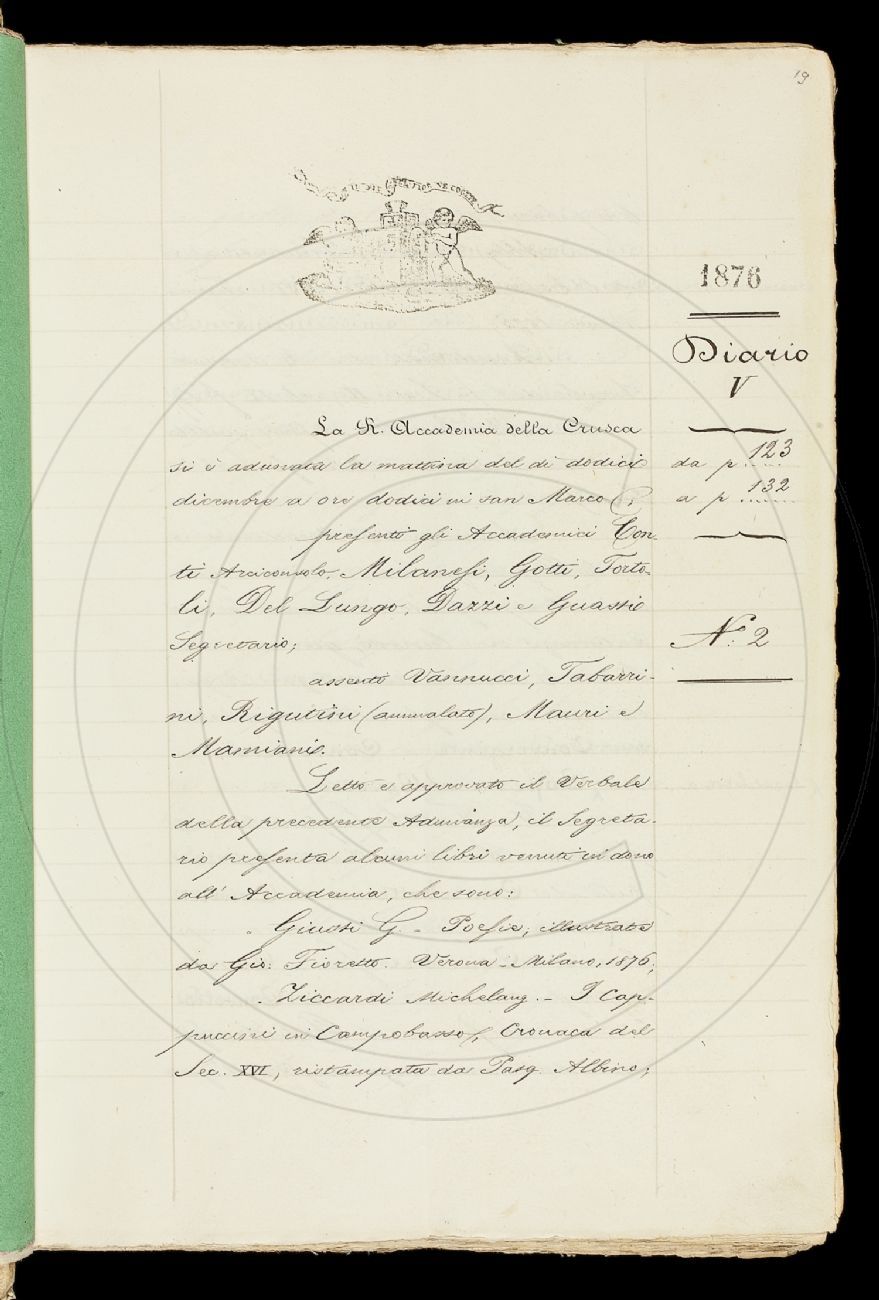 19
IL PIÙ BEL FIOR NE COGLIE
1876
Diario
V
La R. Accademia della Crusca
si è adunata la mattina del dì dodici
da p. 123
dicembre a ore dodici in san Marco;
a p. 132
presenti gli Accademici Con-
ti Arciconsolo, Milanesi, Gotti, Torto-
li, Del Lungo, Dazzi e Guasti
Segretario;
N.° 2
assenti Vannucci, Tabarri-
ni, Rigutini (ammalato), Mauri e
Mamiani.
Letto e approvato il Verbale
della precedente Adunanza, il Segreta-
rio presenta alcuni libri venuti in dono
all' Accademia, che sono:
Giusti G. - Poesie, illustrate
da Gio: Fioretto. Verona - Milano, 1876;
Ziccardi Michelang. - I Cap-
puccini in Campobasso, Cronaca del
Sec. XVI, ristampata da Pasq. Albino;